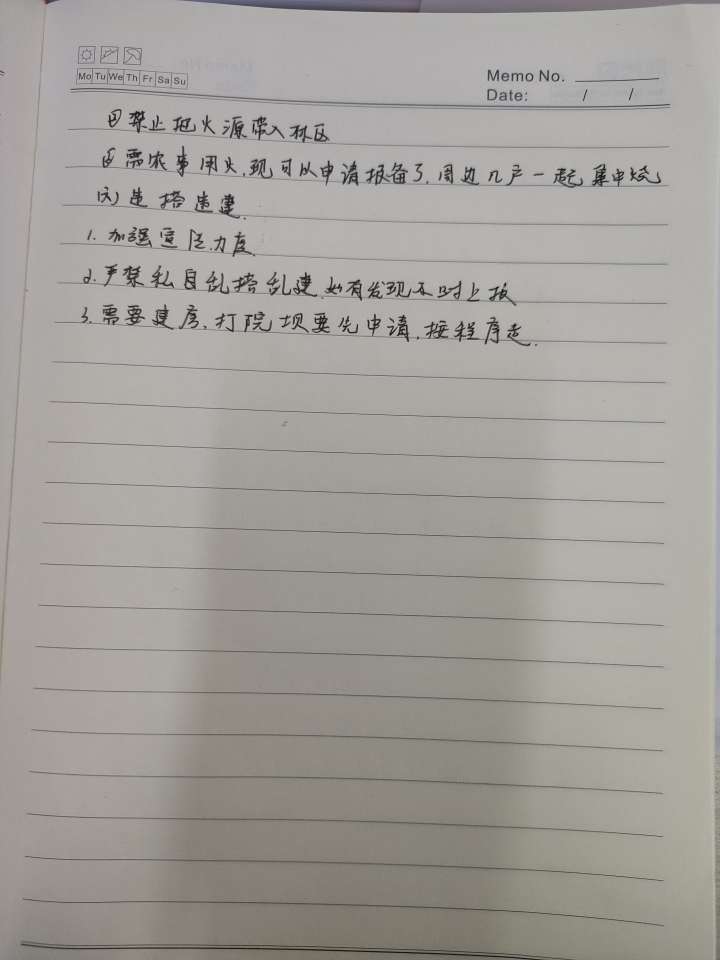 Mo Tu We Th Fr Sa Su
Memo No.
Date: / /
④禁止把火源带入林区
⑤需农事用火,现可以申请报备了,周边几户一起集中烧
(六)违搭违建.
1.加强宣传力度
2.严禁私自乱搭乱建,如有发现不对上报
3.需要建房,打院坝要先申请,按程序走.